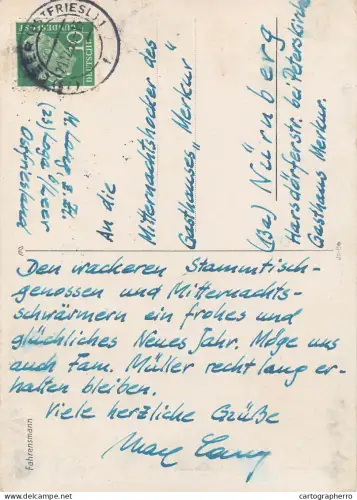 (OSTFRIESL)
10
DEUTSCHE
BUNDESPOST
M. Lang z. Zt.
(23) Loga / Leer
Ostfriesland
An die
Mitternachtshocker des
Gasthauses „Merkur"
(13a) Nürnberg
Harsdörferstr. bei Peterskirche
Gasthaus Merkur.
Den wackeren Stammtisch-
genossen und Mitternachts-
schwärmern ein frohes und
glückliches Neues Jahr. Möge uns
auch Fam. Müller recht lang er-
halten bleiben.
Viele herzliche Grüße
Max Lang
Fahrensmann
www.cartographero.com